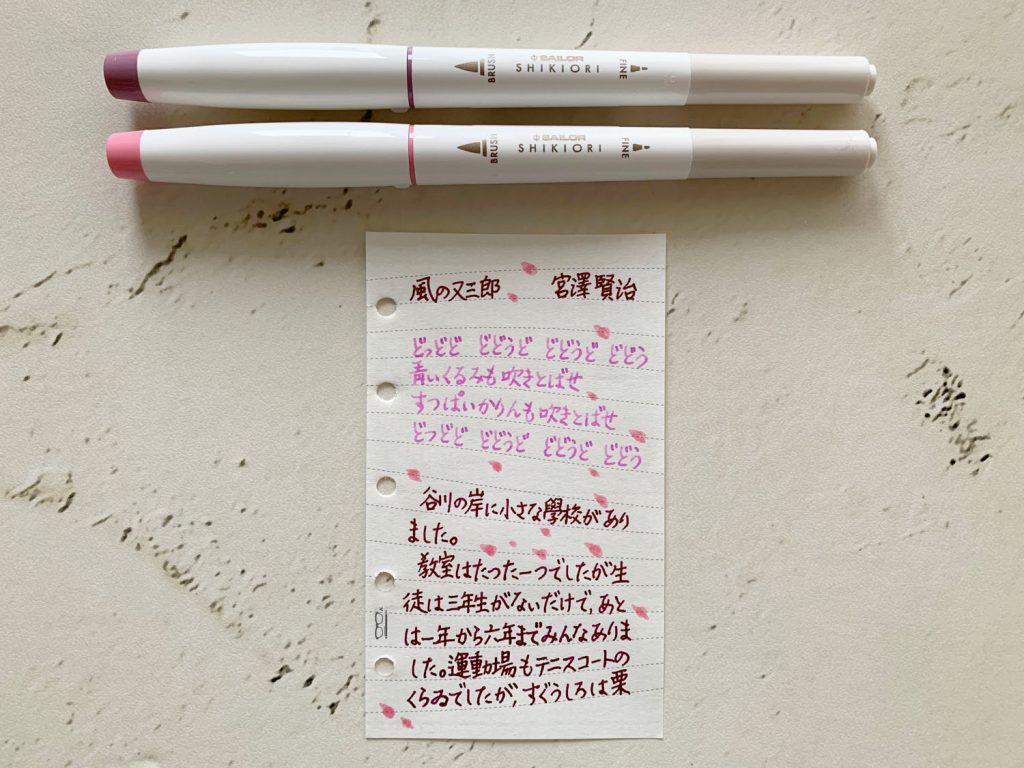 BRUSH SAILOR SHIKIORI FINE
BRUSH SAILOR SHIKIORI FINE
風の又三郎 宮澤賢治
どっどど どどうど どどうど どどう
青いくるみも吹きとばせ
すっぱいかりんも吹きとばせ
どっどど どどうど どどうど どどう
谷川の岸に小さな學校があり
ました。
教室はたった一つでしたが生
徒は三年生がないだけで,あと
は一年から六年までみんなありま
した。運動場もテニスコートの
くらゐでしたが,すぐうしろは栗